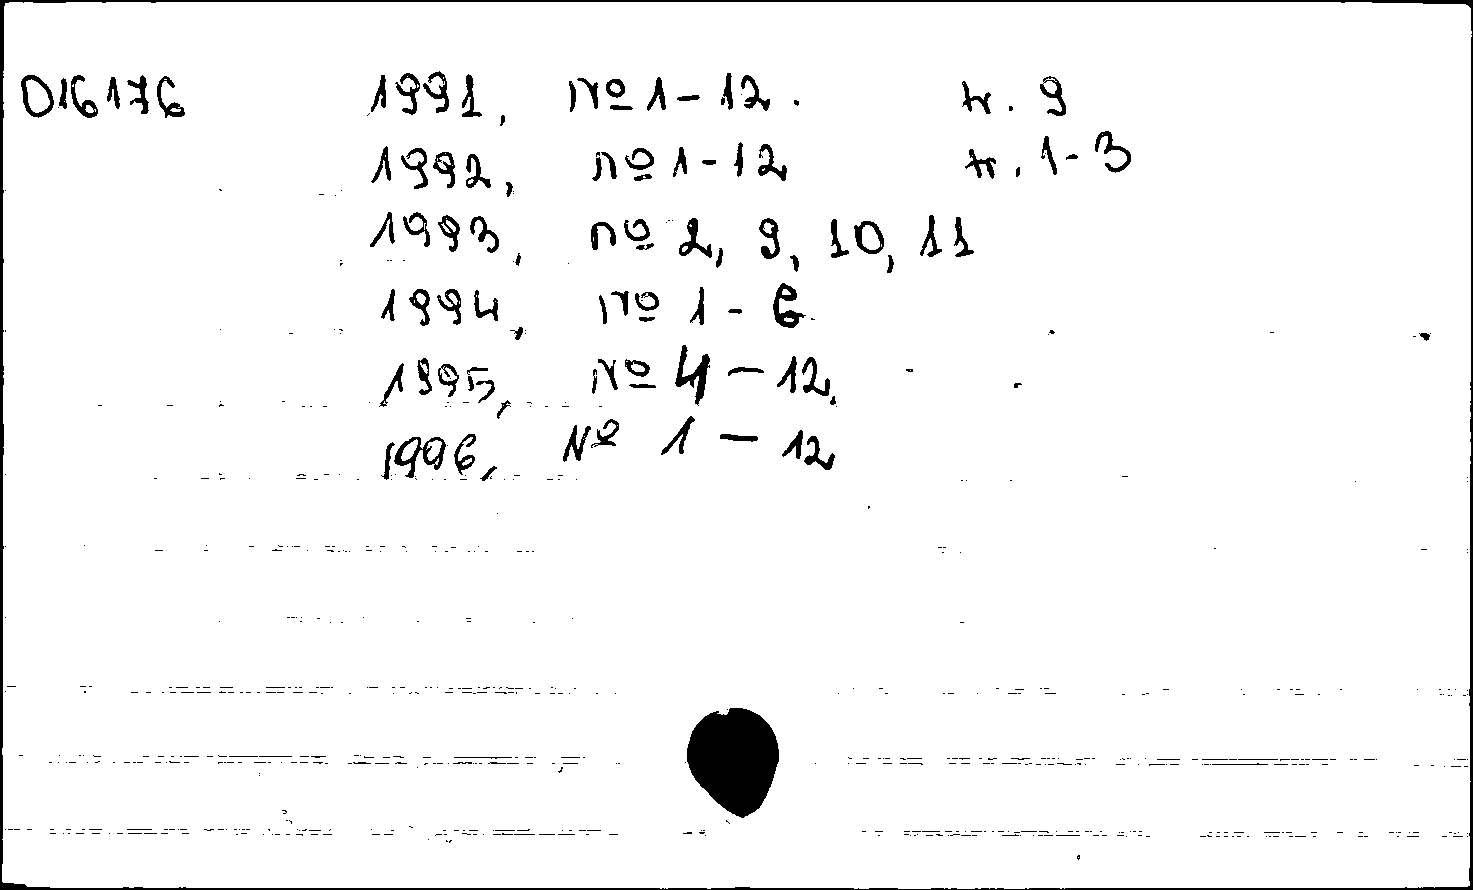 D16176 1991, nº 1-12. tr. 9
1992, nº 1-12 tr. 1-3
1993, nº 2, 9, 10, 11
1994, nº 1-6
1995, Nº 4-12.
1996, Nº 1-12